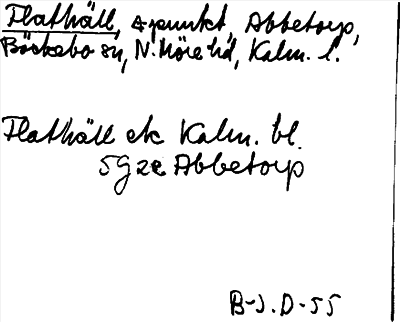 Flathäll, △punkt, Abbetorp,
Bäckebo sn, N. Möre hd, Kalm. l.
Flathäll ek Kalm. bl.
5g 2e Abbetorp
B-J. D-55